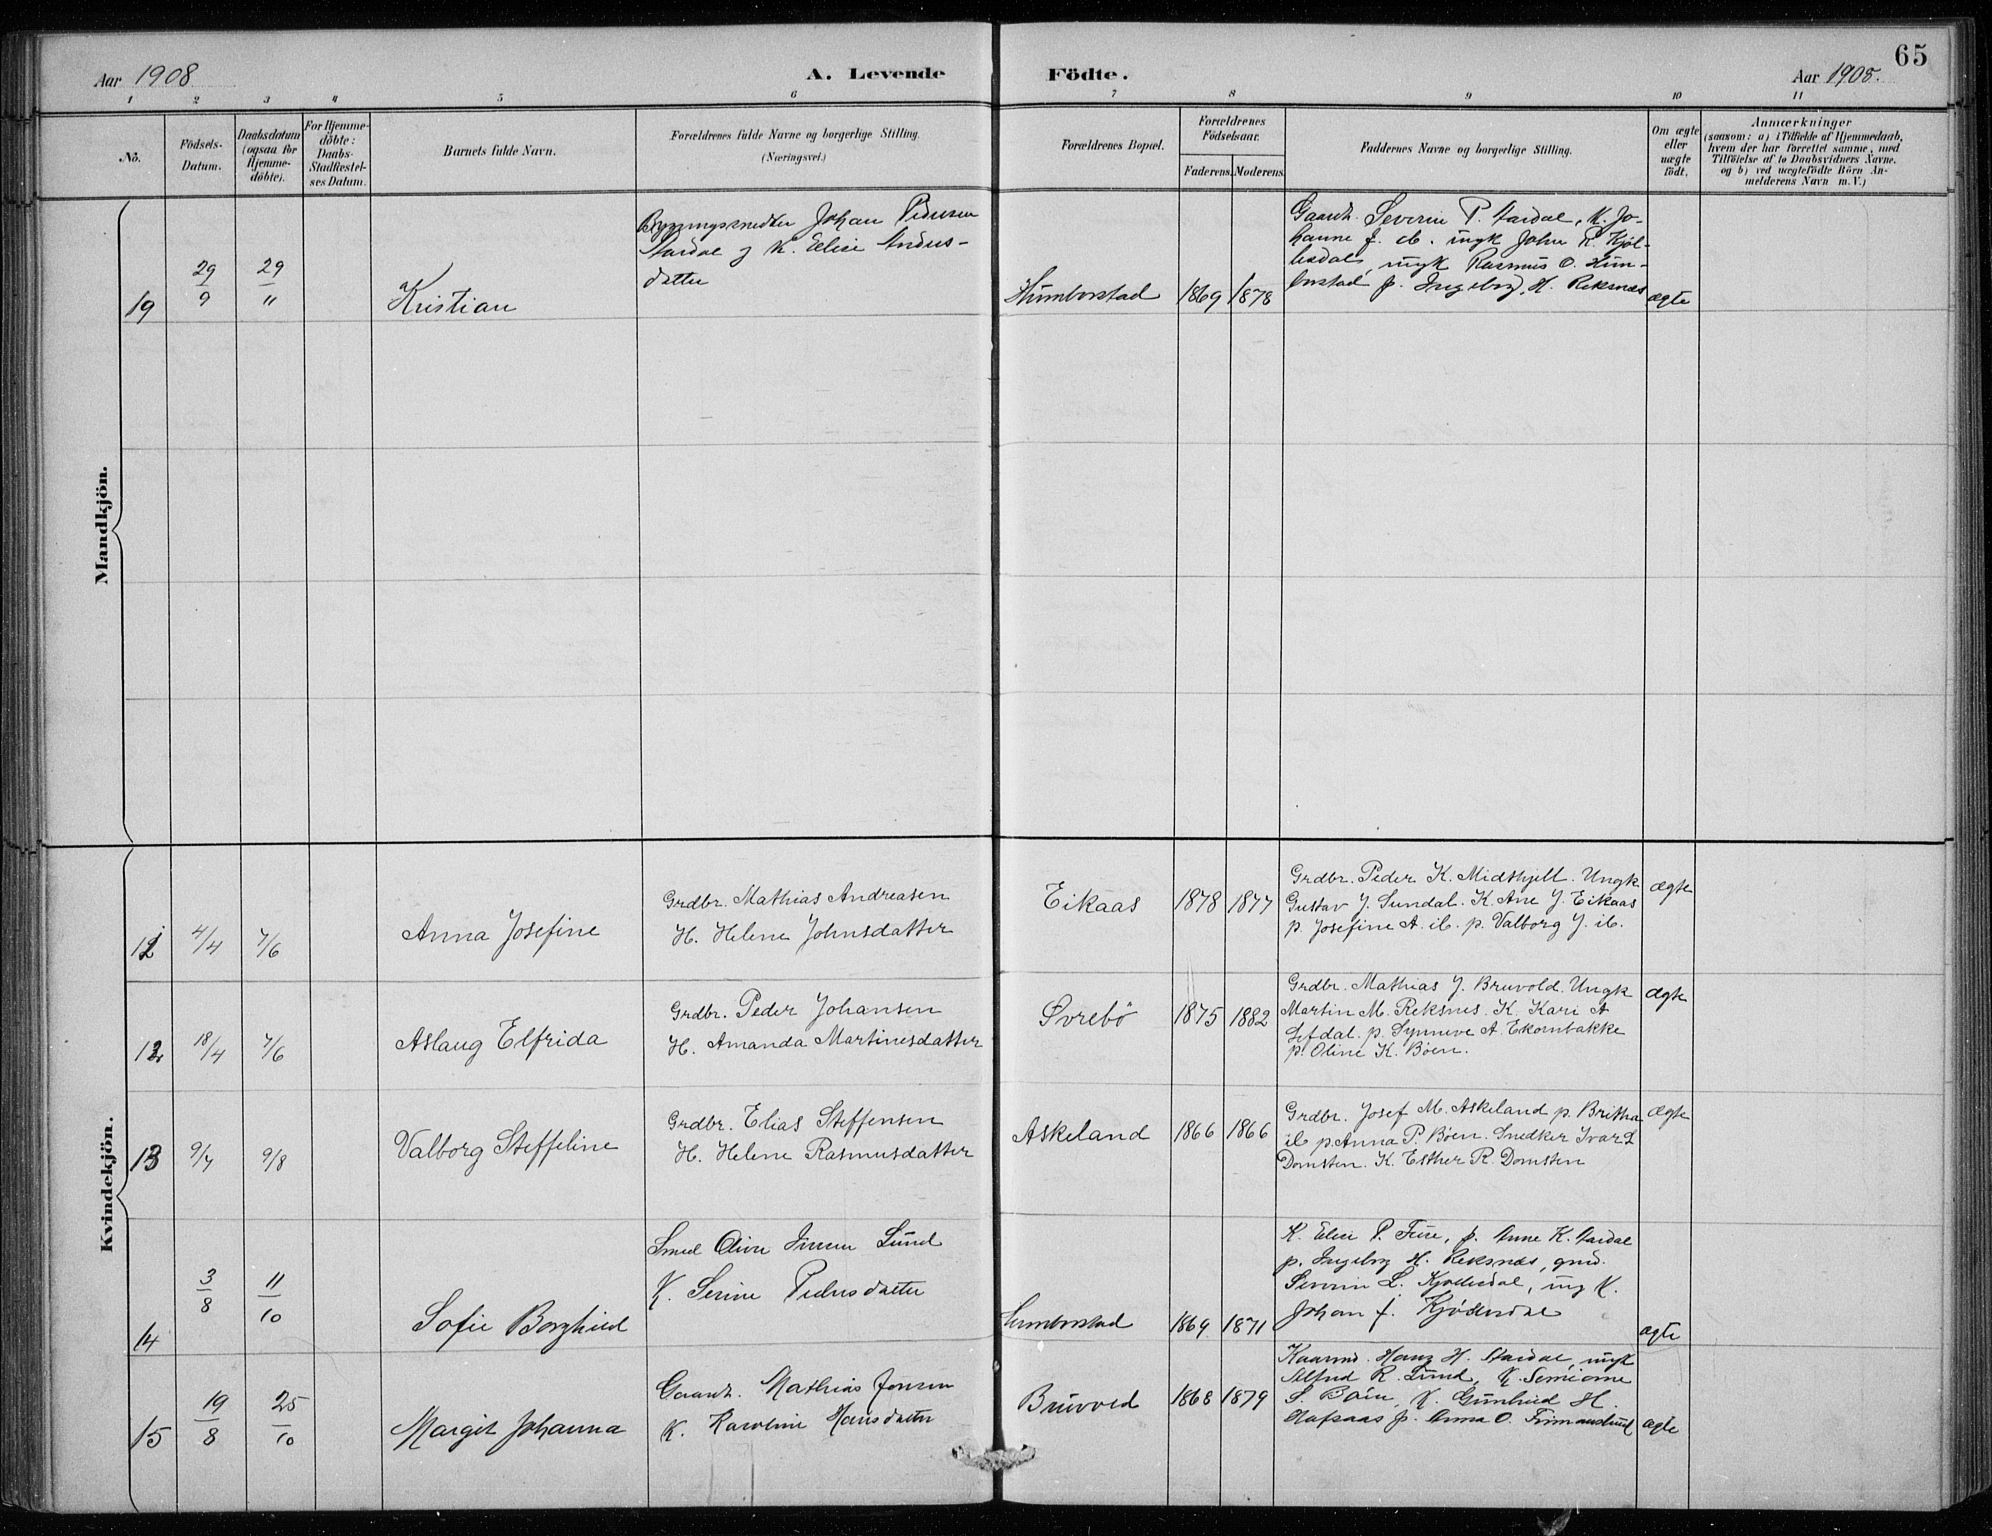 65
Aar 1908
A. Levende
Födte.
Aar 1908.
1 2 3 4 5 6 7 8 9 10 11
No.
Födsels-
Datum.
Daabsdatum
(ogsaa for
Hjemme-
döbte).
For Hjemme-
döbte:
Daabs-
Stadfæstel-
ses Datum.
Barnets fulde Navn.
Forældrenes fulde Navne og borgerlige Stilling.
(Næringsvei.)
Forældrenes Bopæl.
Forældrenes
Födselsaar.
Faderens. Moderens.
Faddernes Navne og borgerlige Stilling.
Om ægte
eller
uægte
födt.
Anmærkninger
(saasom: a) i Tilfælde af Hjemmedaab,
hvem der har forrettet samme, med
Tilföielse af to Daabsvidners Navne,
og b) ved uægtefödte Börn An-
melderens Navn m. V.)
Mandkjön.
19
29/9
29/11
Kristian
Bygningssnedker Johan Pedersen
Stardal og K. Elise Anders-
datter
Humborstad
1869 1878
Gaardb. Severin P. Stardal, K. Jo-
hanne J. ib. ungk John R. Kjöl-
lesdal, ungk Rasmus O. Hum-
borstad p. Ingeborg H. Reksnæs
ægte
Kvindekjön.
11
4/4
7/6
Anna Josefine
Grdbr. Mathias Andreasen
H. Helene Johnsdatter
Eikaas
1878 1877
Grdbr. Peder K. Midthjell. Ungk
Gustav J. Sundal. K. Ane J. Eikaas
p. Josefine A. ib. p. Valborg J. ib.
ægte
12
18/4
7/6
Aslaug Elfrida
Grdbr. Peder Johansen
H. Amanda Martinesdatter
Svrebö
1875 1882
Grdbr. Mathias J. Bruvold. Ungk
Martin M. Reksnes. K. Kari A
Sefdal. p. Synneve A. Ekornbakke
p. Oline K. Böen.
ægte
13
9/7
9/8
Valborg Steffeline
Grdbr. Elias Steffensen
H. Helene Rasmusdatter
Askeland
1866 1866
Grdbr. Josef M. Askeland p. Britha
ib p. Anna P. Böen. Snedker Ivar L
Domsten. K. Esther R. Domsten
ægte
14
3/8
11/10
Sofie Borghild
Smed Oliver Jensen Lund
K. Serine Pedersdatter
Humborstad
1869 1871
K. Elise P. Fure, p. Anne K. Stardal
p. Ingeborg H. Reksnæs, grd.
Severin L. Kjöllesdal, ung K.
Johan J. Kjöllesdal
ægte
15
19/8
25/10
Margit Johanna
Gaardb. Mathias Jonsen
K. Karoline Hansdatter
Bruvold
1868 1879
Kaarmd. Hans H. Stardal, ungk
Alfred R. Lund, K.
S. Böen, K. Gunhild H.
p. Anna O.
ægte